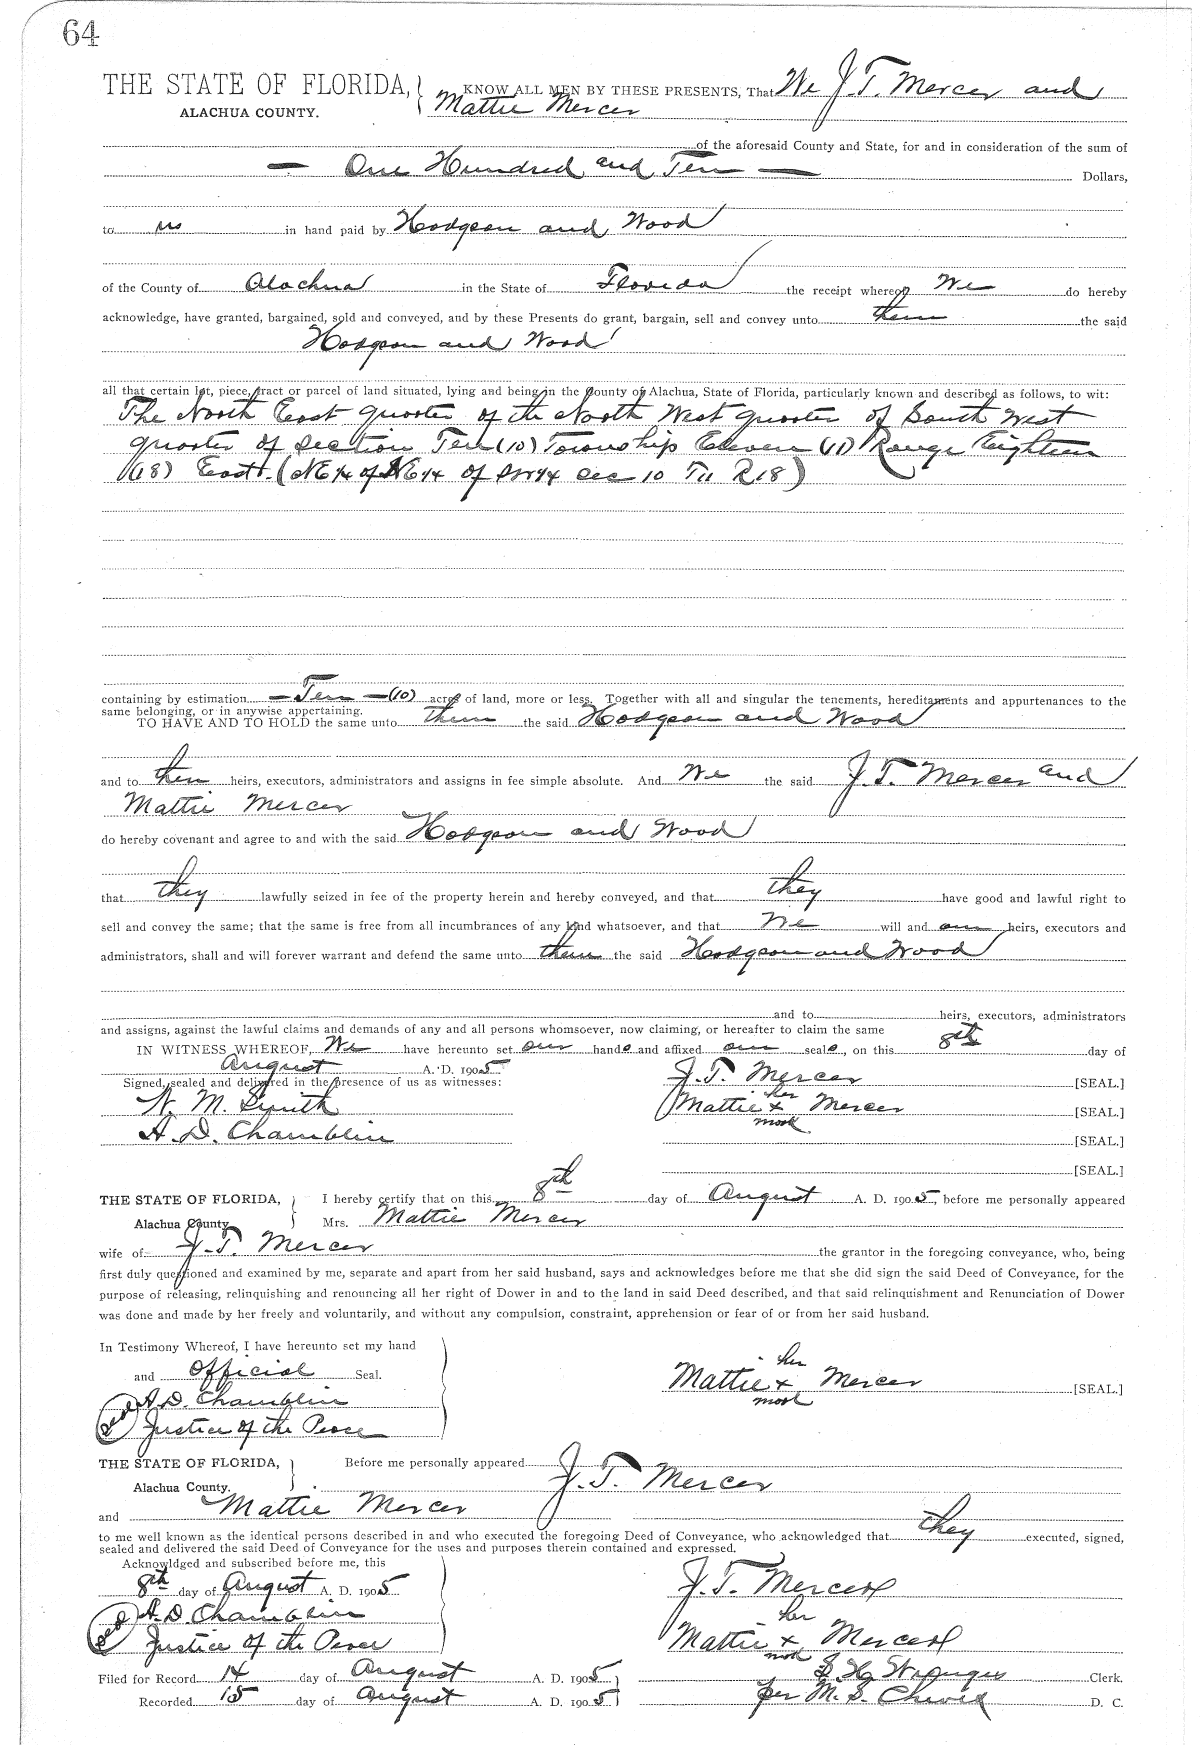 64
THE STATE OF FLORIDA, KNOW ALL MEN BY THESE PRESENTS, That We J. T. Mercer and
ALACHUA COUNTY. Mattie Mercer
of the aforesaid County and State, for and in consideration of the sum of
— One Hundred and Ten — Dollars,
to us in hand paid by Hodgson and Wood
of the County of Alachua in the State of Florida the receipt whereof We do hereby
acknowledge, have granted, bargained, sold and conveyed, and by these Presents do grant, bargain, sell and convey unto them the said
Hodgson and Wood
all that certain lot, piece, tract or parcel of land situated, lying and being in the County of Alachua, State of Florida, particularly known and described as follows, to wit:
The North East quarter of the North West quarter of South West
quarter of Section Ten (10) Township Eleven (11) Range Eighteen
(18) East. (NE¼ of NE¼ of SW¼ Sec 10 T11 R18)
containing by estimation — Ten — (10) acres of land, more or less. Together with all and singular the tenements, hereditaments and appurtenances to the
same belonging, or in anywise appertaining.
TO HAVE AND TO HOLD the same unto them the said Hodgson and Wood
and to then heirs, executors, administrators and assigns in fee simple absolute. And We the said J. T. Mercer and
Mattie Mercer
do hereby covenant and agree to and with the said Hodgson and Wood
that they lawfully seized in fee of the property herein and hereby conveyed, and that they have good and lawful right to
sell and convey the same; that the same is free from all incumbrances of any kind whatsoever, and that We will and our heirs, executors and
administrators, shall and will forever warrant and defend the same unto them the said Hodgson and Wood
and to heirs, executors, administrators
and assigns, against the lawful claims and demands of any and all persons whomsoever, now claiming, or hereafter to claim the same
IN WITNESS WHEREOF, We have hereunto set our hands and affixed our seals, on this 8th day of
August A. D. 1905
Signed, sealed and delivered in the presence of us as witnesses: J. T. Mercer [SEAL.]
her
W. M. Smith Mattie x Mercer [SEAL.]
mark
A. D. Chamblin [SEAL.]
[SEAL.]
THE STATE OF FLORIDA, I hereby certify that on this 8th day of August A. D. 1905, before me personally appeared
Alachua County Mrs. Mattie Mercer
wife of J. T. Mercer the grantor in the foregoing conveyance, who, being
first duly questioned and examined by me, separate and apart from her said husband, says and acknowledges before me that she did sign the said Deed of Conveyance, for the
purpose of releasing, relinquishing and renouncing all her right of Dower in and to the land in said Deed described, and that said relinquishment and Renunciation of Dower
was done and made by her freely and voluntarily, and without any compulsion, constraint, apprehension or fear of or from her said husband.
In Testimony Whereof, I have hereunto set my hand
and official Seal. her
Mattie x Mercer [SEAL.]
mark
Seal A. D. Chamblin
Justice of the Peace
THE STATE OF FLORIDA, Before me personally appeared J. T. Mercer
Alachua County.
and Mattie Mercer
to me well known as the identical persons described in and who executed the foregoing Deed of Conveyance, who acknowledged that they executed, signed,
sealed and delivered the said Deed of Conveyance for the uses and purposes therein contained and expressed.
Acknowldged and subscribed before me, this
8th day of August A. D. 1905 J. T. Mercer
Seal A. D. Chamblin her
Justice of the Peace Mattie x Mercer
mark
Filed for Record 14 day of August A. D. 1905 Clerk.
Recorded 15 day of August A. D. 1905 per M. S. D. C.